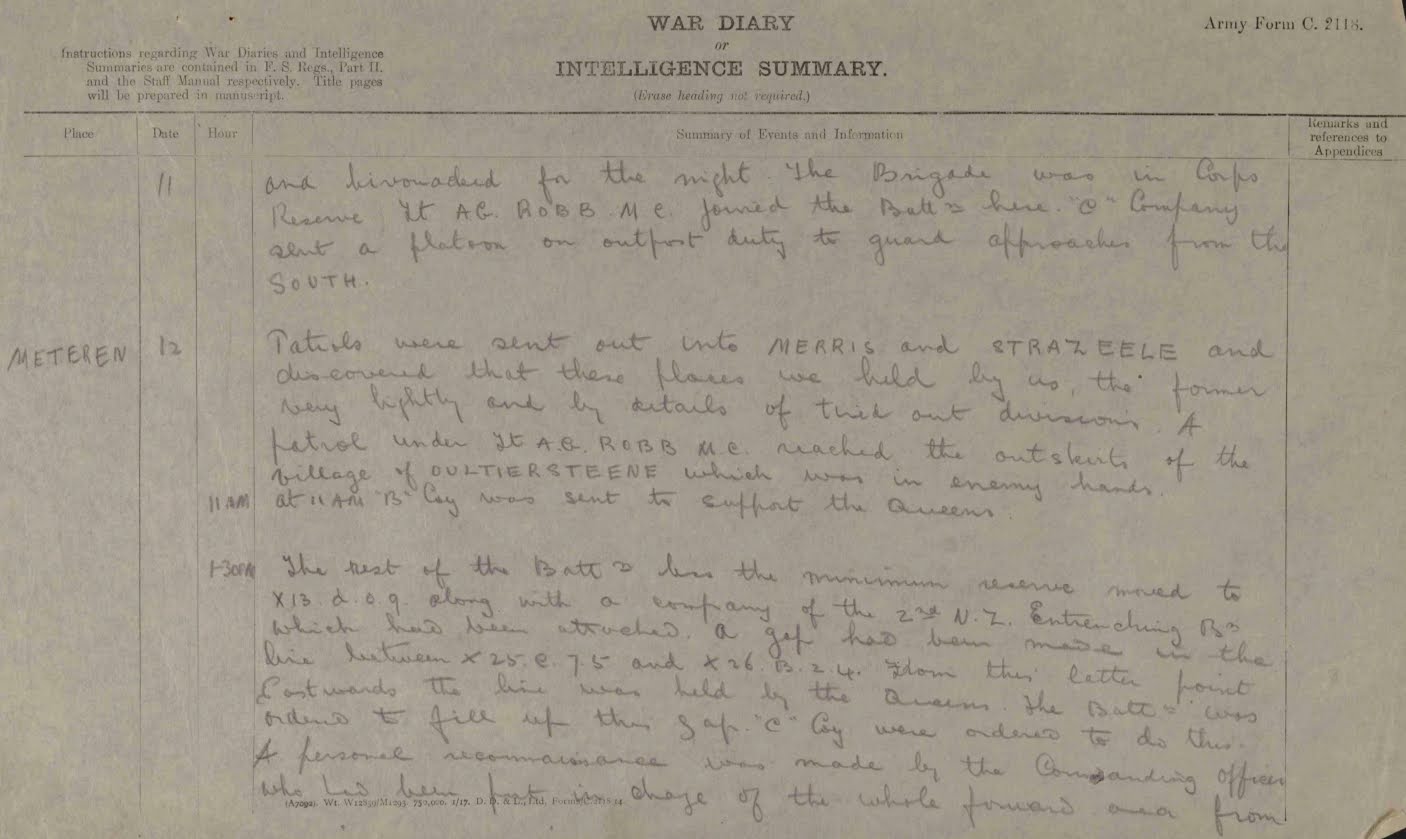 WAR DIARY
or
INTELLIGENCE SUMMARY.
(Erase heading not required.)
Army Form C. 2118.
Instructions regarding War Diaries and Intelligence
Summaries are contained in F. S. Regs., Part II.
and the Staff Manual respectively. Title pages
will be prepared in manuscript.
Place Date Hour Summary of Events and Information Remarks and
references to
Appendices
11 and bivouaced for the night. The Brigade was in Corps
Reserve Lt A.G. ROBB M.C. joined the Battn here. "C" Company
sent a platoon on outpost duty to guard approaches from the
SOUTH.
METEREN 12 Patrols were sent out into MERRIS and STRAZEELE and
discovered that these places we held by us, the former
very lightly and by details of tired out divisions. A
patrol under Lt A.G. ROBB M.C. reached the outskirts of the
village of OULTIERSTEENE which was in enemy hands.
11 AM at 11 AM "B" Coy was sent to support the Queens.
1-30PM The rest of the Battn less the minimum reserve moved to
X13.d.0.9. along with a company of the 2nd N.Z. Entrenching Bn
which had been attached. A gap had been made in the
line between X25.c.7.5 and X26.B.2.4. From this latter point
Eastwards the line was held by the Queens. The Battn was
ordered to fill up this gap. "C" Coy were ordered to do this.
A personal reconnaissance was made by the Commanding Officer
who had been put in charge of the whole forward area from
(A7092). Wt. W12839/M1293. 750,000. 1/17. D. D. & L., Ltd. Forms/C.2118/14.